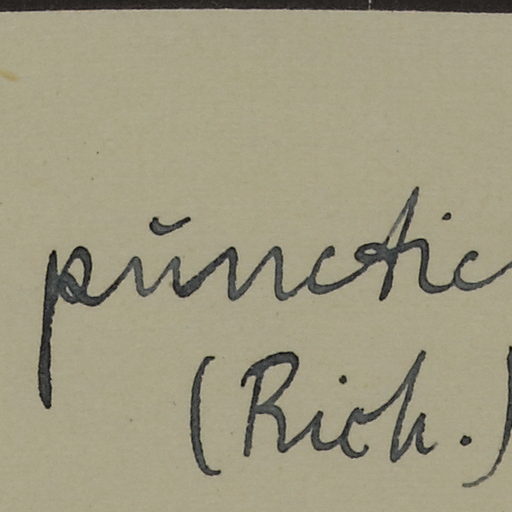 pŭnctic
(Rich.)